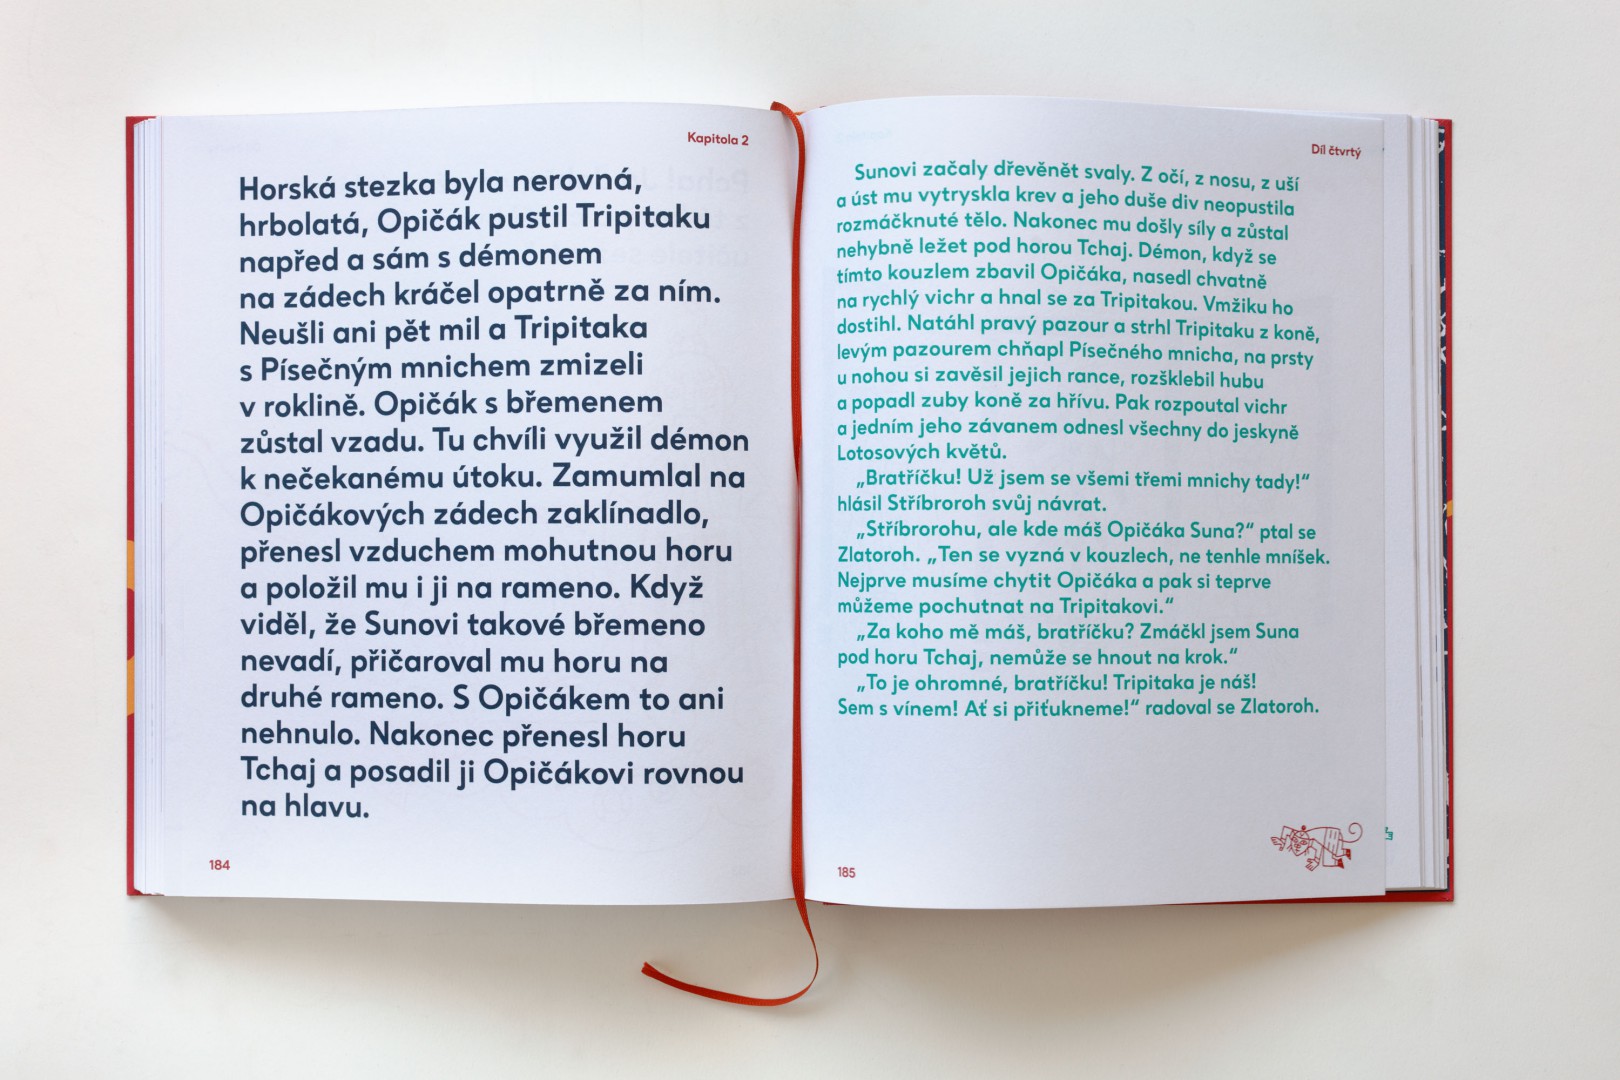 Kapitola 2
Horská stezka byla nerovná,
hrbolatá, Opičák pustil Tripitaku
napřed a sám s démonem
na zádech kráčel opatrně za ním.
Neušli ani pět mil a Tripitaka
s Písečným mnichem zmizeli
v roklině. Opičák s břemenem
zůstal vzadu. Tu chvíli využil démon
k nečekanému útoku. Zamumlal na
Opičákových zádech zaklínadlo,
přenesl vzduchem mohutnou horu
a položil mu i ji na rameno. Když
viděl, že Sunovi takové břemeno
nevadí, přičaroval mu horu na
druhé rameno. S Opičákem to ani
nehnulo. Nakonec přenesl horu
Tchaj a posadil ji Opičákovi rovnou
na hlavu.
184
Díl čtvrtý
Sunovi začaly dřevěnět svaly. Z očí, z nosu, z uší
a úst mu vytryskla krev a jeho duše div neopustila
rozmáčknuté tělo. Nakonec mu došly síly a zůstal
nehybně ležet pod horou Tchaj. Démon, když se
tímto kouzlem zbavil Opičáka, nasedl chvatně
na rychlý vichr a hnal se za Tripitakou. Vmžiku ho
dostihl. Natáhl pravý pazour a strhl Tripitaku z koně,
levým pazourem chňapl Písečného mnicha, na prsty
u nohou si zavěsil jejich rance, rozšklebil hubu
a popadl zuby koně za hřívu. Pak rozpoutal vichr
a jedním jeho závanem odnesl všechny do jeskyně
Lotosových květů.
„Bratříčku! Už jsem se všemi třemi mnichy tady!“
hlásil Stříbroroh svůj návrat.
„Stříbrorohu, ale kde máš Opičáka Suna?“ ptal se
Zlatoroh. „Ten se vyzná v kouzlech, ne tenhle mníšek.
Nejprve musíme chytit Opičáka a pak si teprve
můžeme pochutnat na Tripitakovi.“
„Za koho mě máš, bratříčku? Zmáčkl jsem Suna
pod horu Tchaj, nemůže se hnout na krok.“
„To je ohromné, bratříčku! Tripitaka je náš!
Sem s vínem! Ať si přiťukneme!“ radoval se Zlatoroh.
185